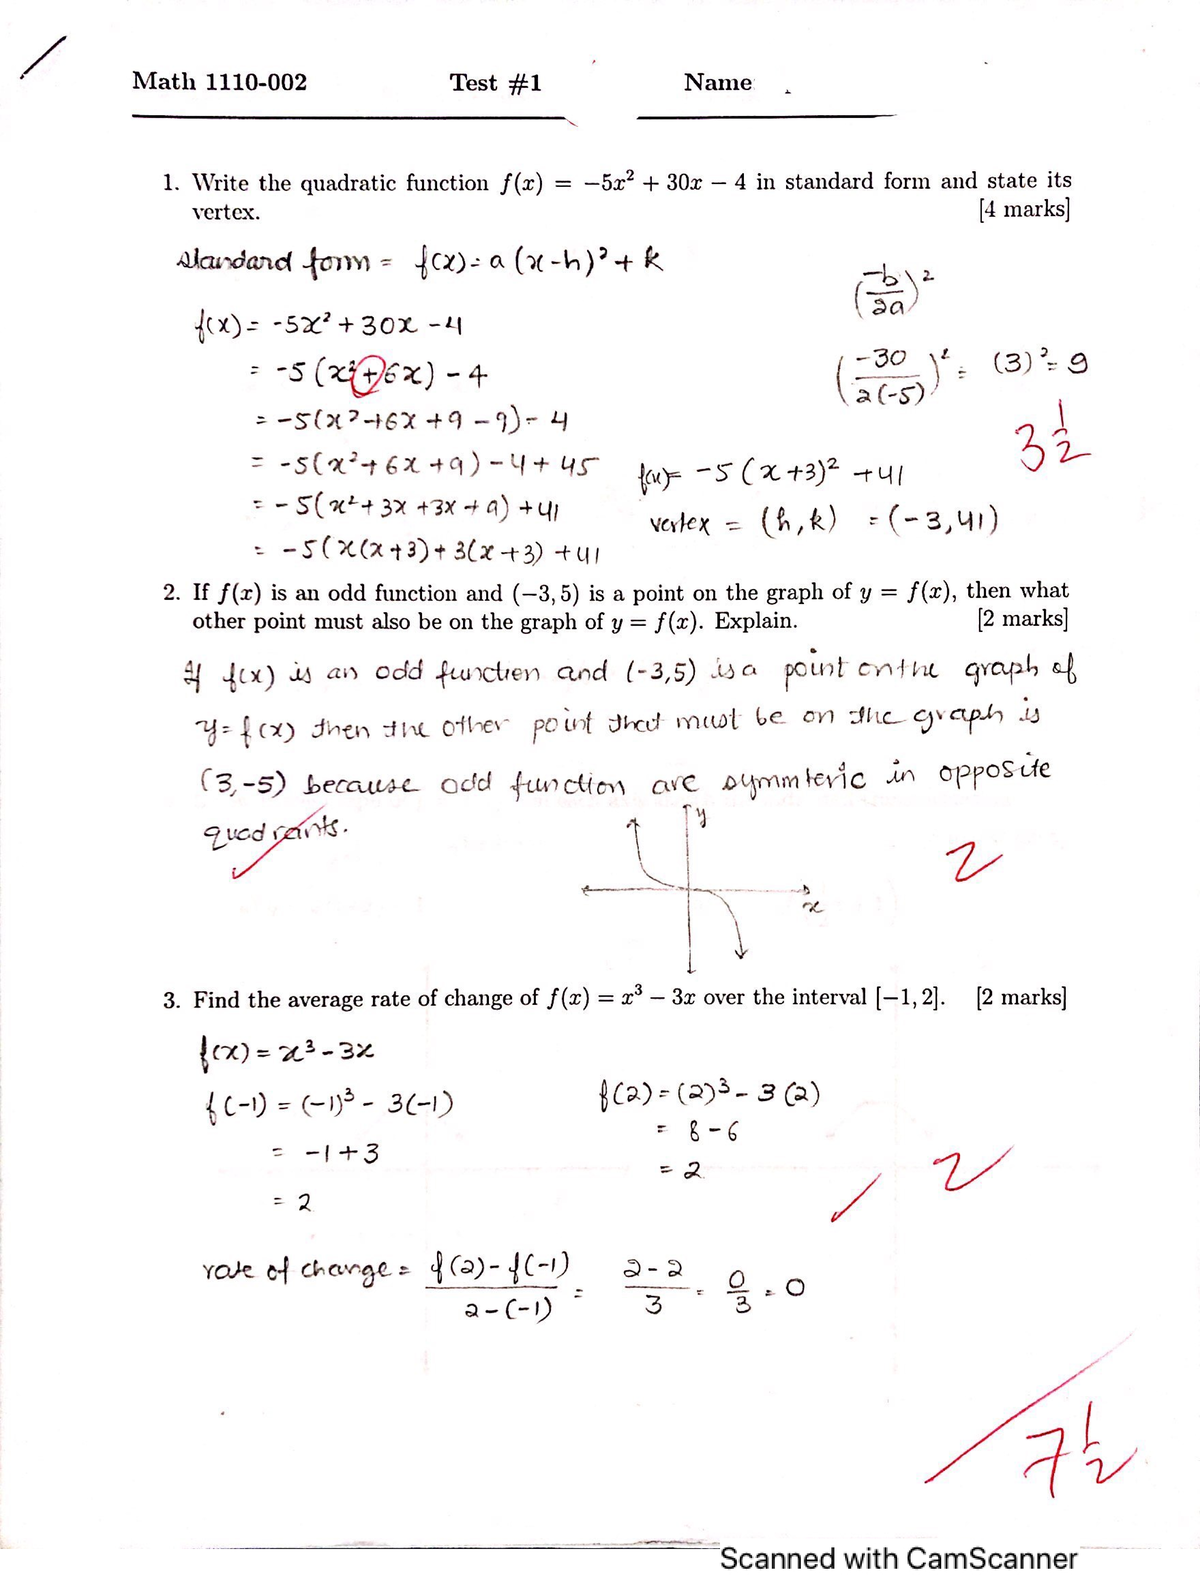 Math 1110-002 Test #1 Name
1. Write the quadratic function f(x) = −5x² + 30x − 4 in standard form and state its
vertex. [4 marks]
standard form = f(x) = a (x-h)² + k
(-b/2a)²
f(x) = -5x² + 30x - 4
= -5 (x² + 6x) - 4
(-30/2(-5))² = (3)² = 9
= -5(x² + 6x + 9 - 9) - 4
3 1/2
= -5(x² + 6x + 9) - 4 + 45
f(x) = -5 (x+3)² + 41
= -5(x² + 3x + 3x + 9) + 41
vertex = (h,k) = (-3,41)
= -5(x(x+3) + 3(x+3) + 41
2. If f(x) is an odd function and (−3, 5) is a point on the graph of y = f(x), then what
other point must also be on the graph of y = f(x). Explain. [2 marks]
If f(x) is an odd function and (-3,5) is a point on the graph of
y = f(x) then the other point that must be on the graph is
(3,-5) because odd function are symmteric in opposite
quadrants.
y
2
x
3. Find the average rate of change of f(x) = x³ − 3x over the interval [−1, 2]. [2 marks]
f(x) = x³ - 3x
f(-1) = (-1)³ - 3(-1) f(2) = (2)³ - 3(2)
= -1 + 3 = 8 - 6
= 2 = 2
2
rate of change = f(2) - f(-1) / 2 - (-1) = 2-2 / 3 = 0/3 = 0
7 1/2
Scanned with CamScanner